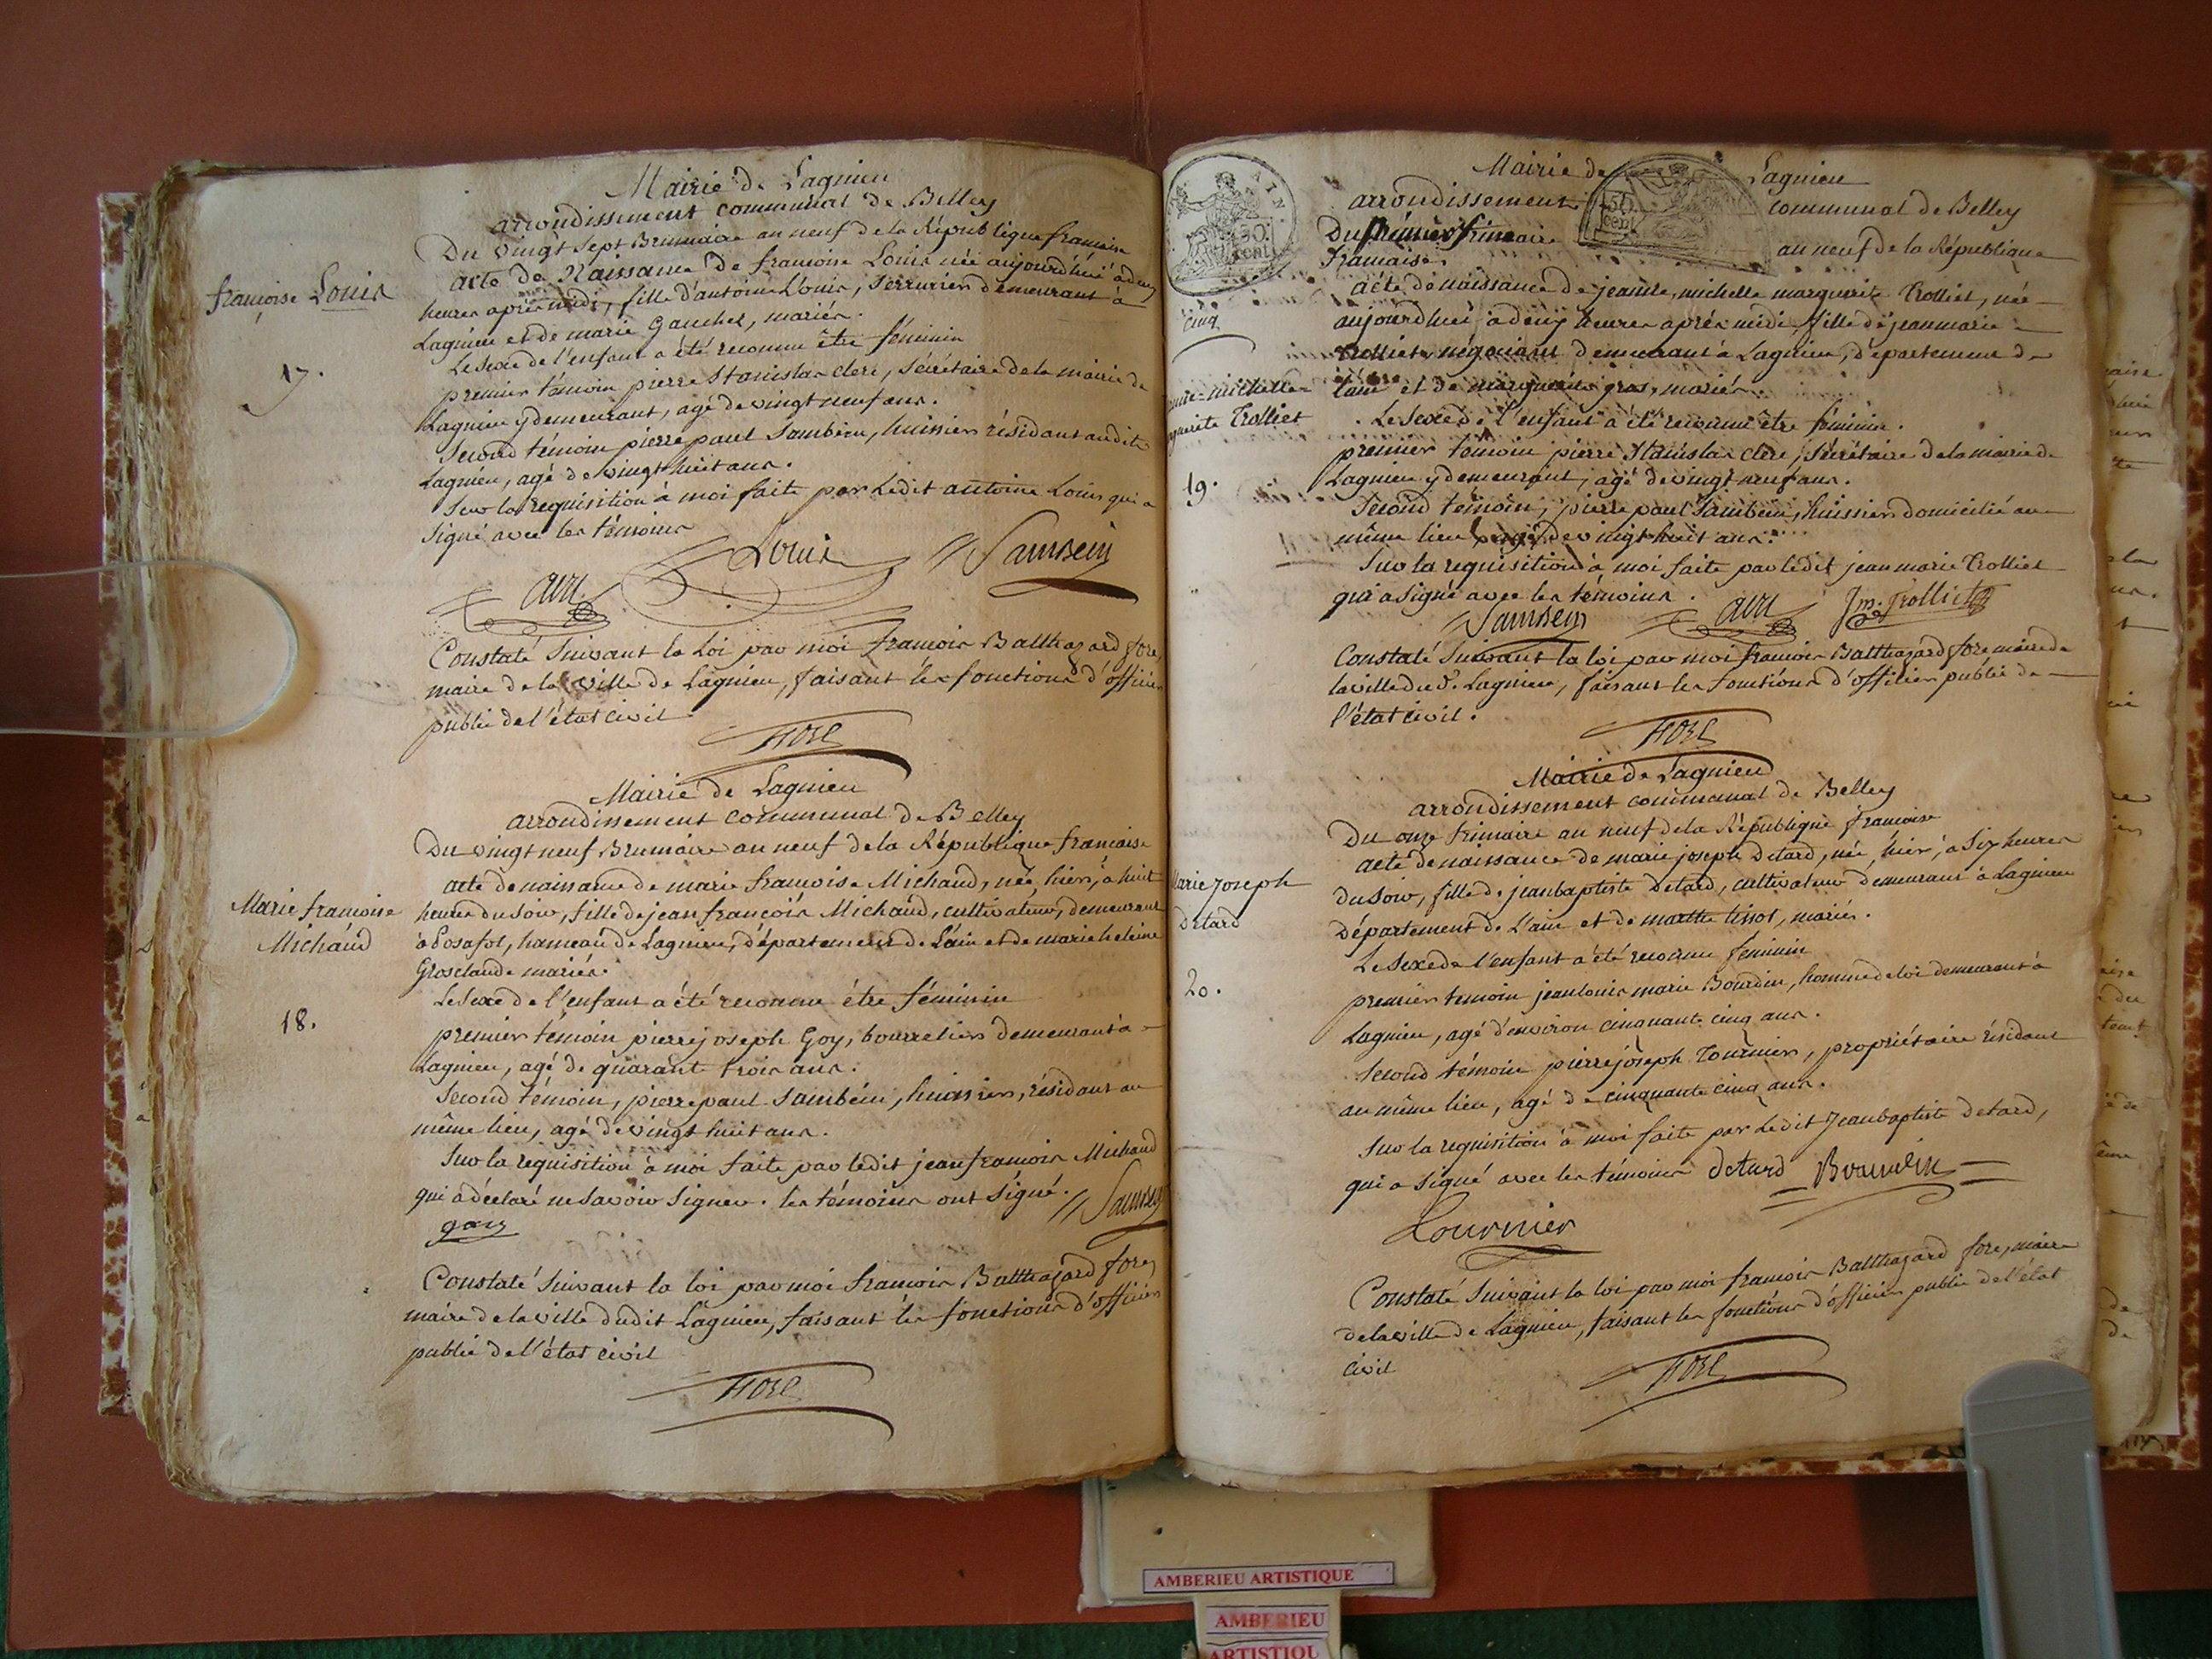 Mairie de Lagnieu
arrondissement communal de Belley
Du vingt sept Brumaire an neuf de la République francaise
françoise Louis
acte de Naissance de francoise Louis née aujourd'hui à deux
heures après midi, fille d'antoine Louis, serrurier demeurant à
Lagnieu et de marie Gauchet, mariés.
17.
Le Sexe de l'enfant a été reconnu être féminin
premier témoin pierre Stanislas clerc, sécrétaire de la mairie de
Lagnieu y demeurant, agé de vingt neuf ans.
Second témoin pierre paul Sambein, huissier résidant audit
Lagnieu, agé de vingt huit ans.
Sur la requisition à moi faite par Ledit antoine Louis qui a
signé avec les témoins
Louis Sambein
Constaté suivant la Loi par moi francois Balthazard fore,
maire de la ville de Lagnieu, faisant les fonctions d'officier
public de l'état civil
fore
Mairie de Lagnieu
arrondissement communal de Belley
Du vingt neuf Brumaire an neuf de la République francaise
Marie francoise
Michaud
acte de naissance de marie francoise Michaud, née hier, à huit
heures du soir, fille de jean françois Michaud, cultivateur, demeurant
à Posafol, hameau de Lagnieu, département de L'ain et de marie heleine
Grosclaude mariés.
18.
Le Sexe de l'enfant a été reconnu être féminin
premier témoin pierre joseph Goy, bourrelier demeurant à
Lagnieu, agé de quarante trois ans.
Second témoin, pierre paul Sambein, huissier, résidant au
même lieu, agé de vingt huit ans.
Sur la requisition à moi faite par ledit jean francois Michaud
qui a déclaré ne savoir signer. les témoins ont signé.
goy Sambein
Constaté suivant la loi par moi francois Balthazard fore,
maire de la ville dudit Lagnieu, faisant les fonctions d'officier
public de l'état civil
fore
Mairie de Lagnieu
arrondissement communal de Belley
50 cent
Du premier frimaire an neuf de la République
francaise.
cinq
acte de naissance de jeanne, michelle marguerite Trolliet, née
aujourd'hui à deux heures après midi, fille de jean marie
Trolliet, négociant demeurant à Lagnieu, département de
michelle
Trolliet
19.
l'ain et de marguerite gros, mariés
Le Sexe de l'enfant a été reconnu être féminin.
premier témoin pierre Stanislas clerc, sécrétaire de la mairie de
Lagnieu y demeurant, agé de vingt neuf ans.
Second témoin, pierre paul Sambein, huissier domicilié au
même lieu, agé de vingt huit ans.
Sur la requisition à moi faite par ledit jean marie Trolliet
qui a signé avec les témoins.
Sambein Jm. Trolliet
Constaté suivant la loi par moi francois Balthazard fore maire de
la ville du d. Lagnieu, faisant les fonctions d'officier public de
l'état civil.
fore
Mairie de Lagnieu
arrondissement communal de Belley
Du onze frimaire an neuf de la République francoise
Marie Joseph
Detard
acte de naissance de marie joseph Detard, née, hier, à Six heures
du soir, fille de jean baptiste Detard, cultivateur demeurant à Lagnieu
Département de L'ain et de marthe tissot, mariés.
20.
Le Sexe de l'enfant a été reconnu feminin
premier temoin jean louis marie Bourdin, homme de loi demeurant à
Lagnieu, agé d'environ cinquante cinq ans.
Second témoin pierre joseph Tournier, propriétaire résidant
au même lieu, agé de cinquante cinq ans.
Sur la requisition à moi faite par Ledit Jean baptiste Detard,
qui a signé avec les témoins detard Bourdin
Tournier
Constaté suivant la loi par moi francois Balthazard fore, maire
de la ville de Lagnieu, faisant les fonctions d'officier public de l'état
civil
fore
AMBERIEU ARTISTIQUE
AMBERIEU